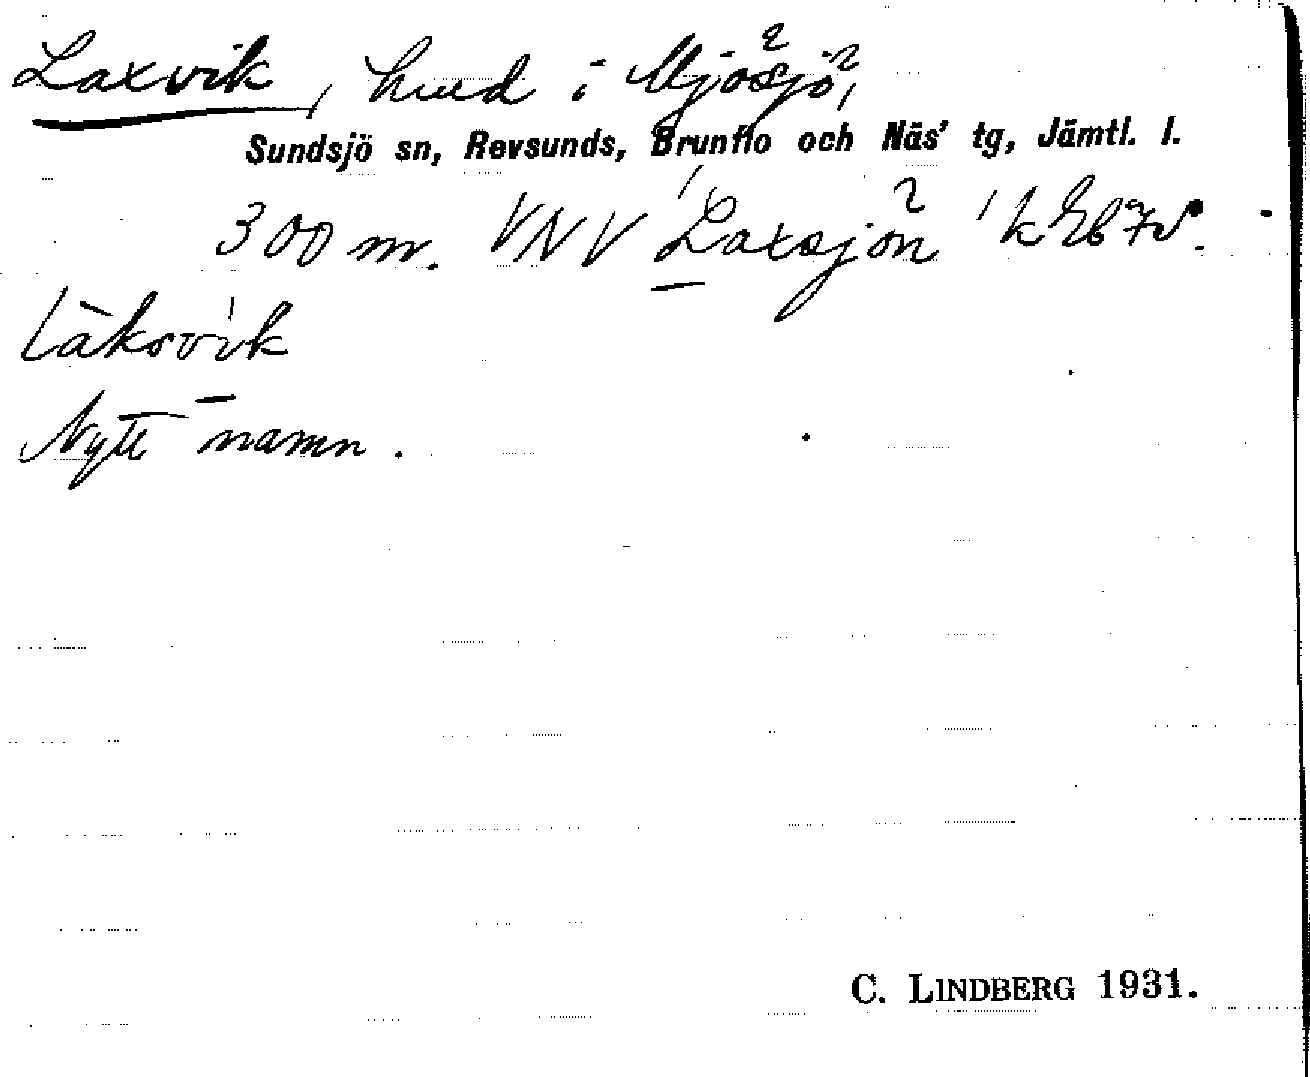 Laxvik, hmd i Mjösjö,
Sundsjö sn, Revsunds, Brunflo och Näs' tg, Jämtl. l.
300 m. VNV Laxsjön
läksvik
Nytt namn.
C. LINDBERG 1931.